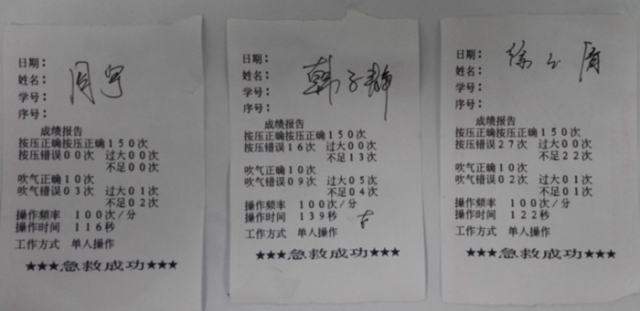 日期：
姓名：周宇
学号：
序号：
成绩报告
按压正确按压正确150次
按压错误00次 过大00次
不足00次
吹气正确10次
吹气错误03次 过大01次
不足02次
操作频率 100次/分
操作时间 116秒
工作方式 单人操作
★★★急救成功★★★
日期：
姓名：韩子静
学号：
序号：
成绩报告
按压正确按压正确150次
按压错误16次 过大00次
不足13次
吹气正确10次
吹气错误09次 过大05次
不足04次
操作频率 100次/分
操作时间 139秒
工作方式 单人操作
★★★急救成功★★★
日期：
姓名：徐
学号：
序号：
成绩报告
按压正确按压正确150次
按压错误27次 过大00次
不足22次
吹气正确10次
吹气错误02次 过大01次
不足01次
操作频率 100次/分
操作时间 122秒
工作方式 单人操作
★★★急救成功★★★